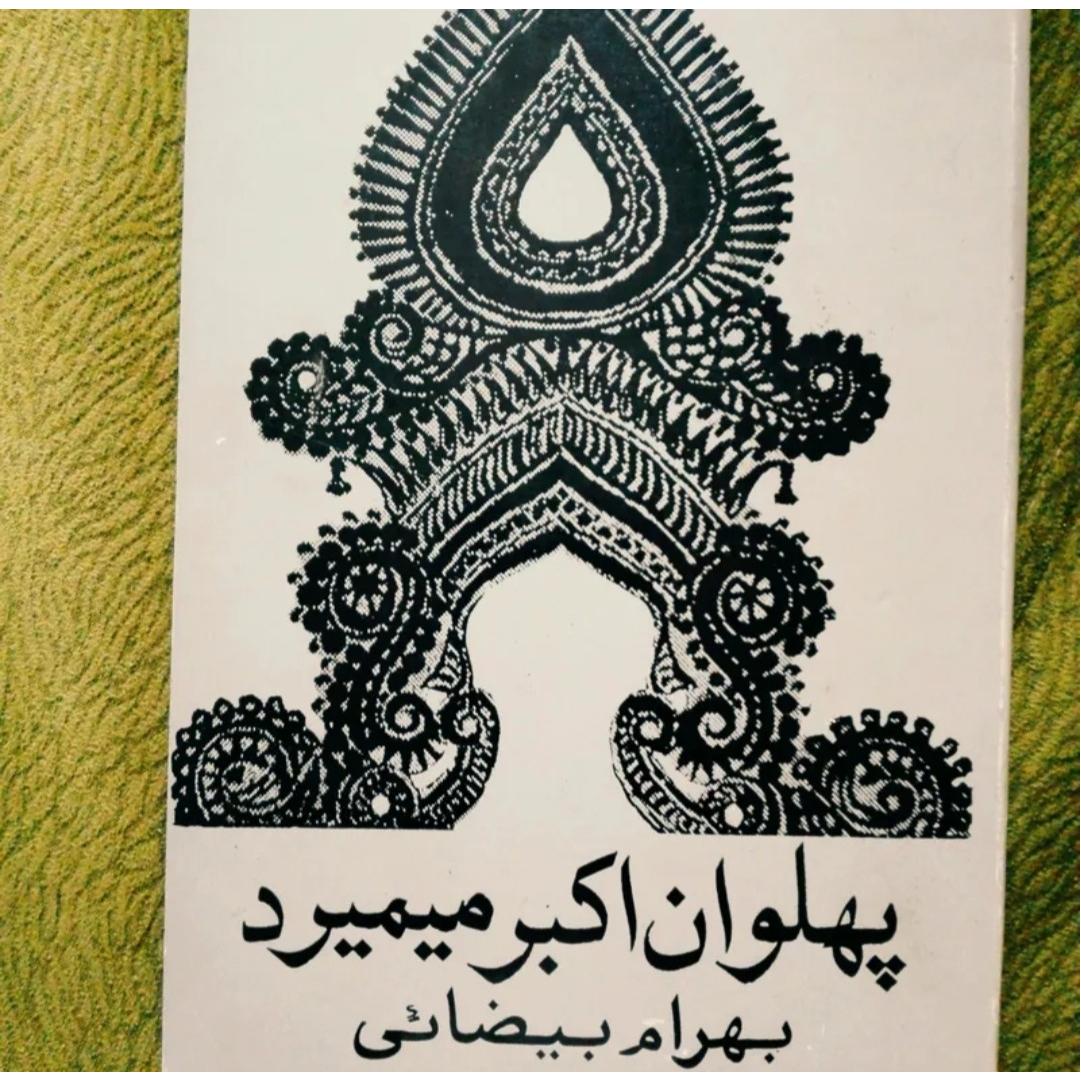 پهلوان اکبر میمیرد
بهرام بیضائی